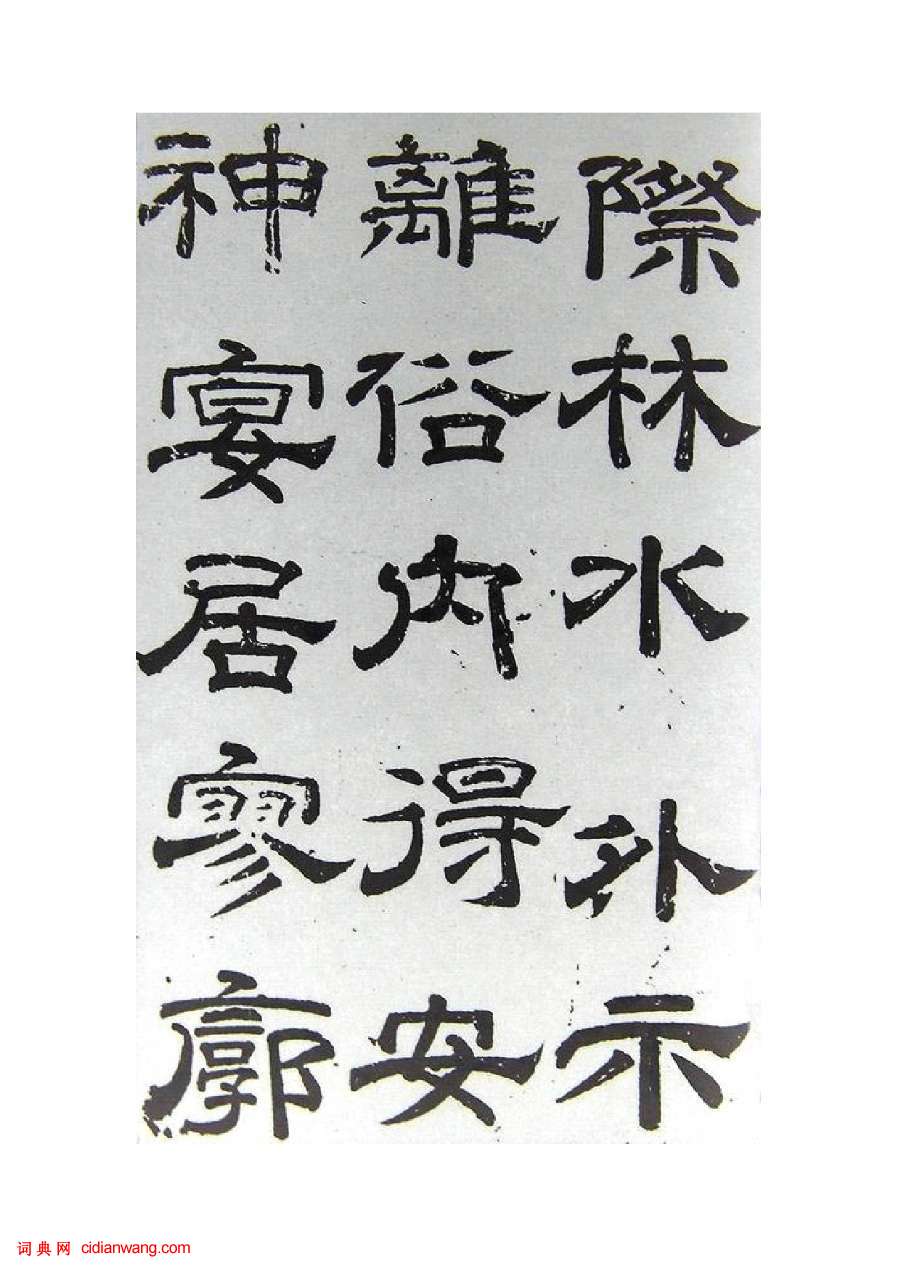 際林水外示
離俗内得安
神宴居寥廓
词典网 cidianwang.com